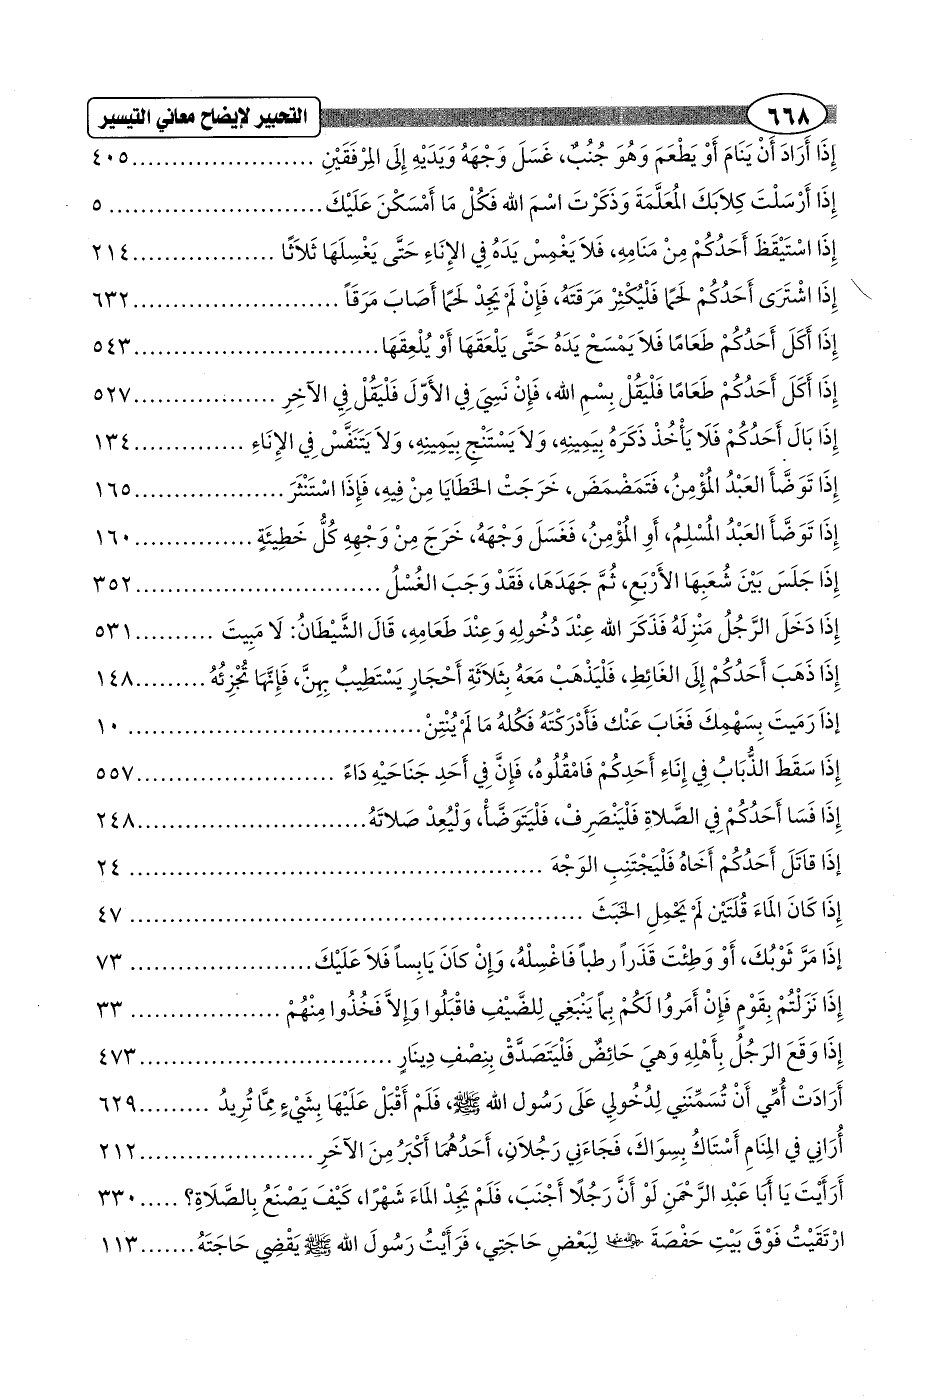 ٦٦٨ التحبير لإيضاح معاني التيسير
إِذَا أَرَادَ أَنْ يَنَامَ أَوْ يَطْعَمَ وَهُوَ جُنُبٌ، غَسَلَ وَجْهَهُ وَيَدَيْهِ إِلَى المِرْفَقَيْنِ ..................... ٤٠٥
إِذَا أَرْسَلْتَ كِلاَبَكَ المُعَلَّمَةَ وَذَكَرْتَ اسْمَ الله فَكُلْ مَا أَمْسَكْنَ عَلَيْكَ ......................... ٥
إِذَا اسْتَيْقَظَ أَحَدُكُمْ مِنْ مَنَامِهِ، فَلاَ يَغْمِسْ يَدَهُ فِي الإِنَاءِ حَتَّى يَغْسِلَهَا ثَلاَثًا ................. ٢١٤
إِذَا اشْتَرَى أَحَدُكُمْ لَحْمًا فَلْيُكْثِرْ مَرَقَتَهُ، فَإِنْ لَمْ يَجِدْ لَحْمًا أَصَابَ مَرَقَاً ........................ ٦٣٢
إِذَا أَكَلَ أَحَدُكُمْ طَعَامًا فَلاَ يَمْسَحْ يَدَهُ حَتَّى يَلْعَقَهَا أَوْ يُلْعِقَهَا ............................. ٥٤٣
إِذَا أَكَلَ أَحَدُكُمْ طَعَامًا فَلْيَقُلْ بِسْمِ الله، فَإِنْ نَسِيَ فِي الأَوَّلِ فَلْيَقُلْ فِي الآخِرِ ................. ٥٢٧
إِذَا بَالَ أَحَدُكُمْ فَلَا يَأْخُذْ ذَكَرَهُ بِيَمِينِهِ، وَلاَ يَسْتَنْجِ بِيَمِينِهِ، وَلاَ يَتَنَفَّسْ فِي الإِنَاءِ ............. ١٣٤
إِذَا تَوَضَّأَ العَبْدُ المُؤْمِنُ، فَتَمَضْمَضَ، خَرَجَتْ الخَطَايَا مِنْ فِيهِ، فَإِذَا اسْتَنْثَرَ .................. ١٦٥
إِذَا تَوَضَّأَ العَبْدُ المُسْلِمُ، أَوِ المُؤْمِنُ، فَغَسَلَ وَجْهَهُ، خَرَجَ مِنْ وَجْهِهِ كُلُّ خَطِيئَةٍ .............. ١٦٠
إِذَا جَلَسَ بَيْنَ شُعَبِهَا الأَرْبَعِ، ثُمَّ جَهَدَهَا، فَقَدْ وَجَبَ الغُسْلُ ............................. ٣٥٢
إِذَا دَخَلَ الرَّجُلُ مَنْزِلَهُ فَذَكَرَ الله عِنْدَ دُخُولِهِ وَعِنْدَ طَعَامِهِ، قَالَ الشَّيْطَانُ: لَا مَبِيتَ .......... ٥٣١
إِذَا ذَهَبَ أَحَدُكُمْ إِلَى الغَائِطِ، فَلْيَذْهَبْ مَعَهُ بِثَلاَثَةِ أَحْجَارٍ يَسْتَطِيبُ بِهِنَّ، فَإِنَّهَا تُجْزِئُهُ ......... ١٤٨
إِذَا رَمَيتَ بِسَهْمِكَ فَغَابَ عَنْك فَأَدْرَكْتَهُ فَكُلهُ مَا لَمْ يُنْتِنْ ................................... ١٠
إِذَا سَقَطَ الذُّبَابُ فِي إِنَاءِ أَحَدِكُمْ فَامْقُلُوهُ، فَإِنَّ فِي أَحَدِ جَنَاحَيْهِ دَاءً ........................ ٥٥٧
إِذَا فَسَا أَحَدُكُمْ فِي الصَّلاَةِ فَلْيَنْصَرِفْ، فَلْيَتَوَضَّأْ، وَلْيُعِدْ صَلاَتَهُ ........................... ٢٤٨
إِذَا قَاتَلَ أَحَدُكُمْ أَخَاهُ فَلْيَجْتَنِبِ الوَجْهَ .............................................. ٢٤
إِذَا كَانَ المَاءَ قُلَتَيْنِ لَمْ يَحْمِلِ الخَبَثَ ................................................ ٤٧
إِذَا مَرَّ ثَوْبُكَ، أَوْ وَطِئْتَ قَذَراً رطباً فَاغْسِلْهُ، وَإِنْ كَانَ يَابِساً فَلاَ عَلَيْكَ ...................... ٧٣
إِذَا نَزَلْتُمْ بِقَوْمٍ فَإِنْ أَمَرُوا لَكُمْ بِمَا يَنْبَغِي لِلضَّيْفِ فاقْبَلُوا وَإِلاَّ فَخُذُوا مِنْهُمْ ................... ٣٣
إِذَا وَقَعَ الرَجُلُ بِأَهْلِهِ وَهيَ حَائِضٌ فَلْيَتَصَدَّقْ بِنِصْفِ دِينَارٍ .............................. ٤٧٣
أَرَادَتْ أُمِّي أَنْ تُسَمِّنَنِي لِدُخُولِي عَلَى رَسُولِ الله ﷺ، فَلَمْ أَقْبَلْ عَلَيْهَا بِشَيْءٍ مِمَّا تُرِيدُ ......... ٦٢٩
أُرَانِي فِي المِنَامِ أَسْتَاكُ بِسِوَاكَ، فَجَاءَنِي رَجُلاَنِ، أَحَدُهُمَا أَكْبَرُ مِنَ الآخَرِ ..................... ٢١٢
أَرَأَيْتَ يَا أَبَا عَبْدِ الرَّحْمَنِ لَوْ أَنَّ رَجُلًا أَجْنَبَ، فَلَمْ يَجِدْ المَاءَ شَهْرًا، كَيْفَ يَصْنَعُ بِالصَّلَاةِ؟ ..... ٣٣٠
ارْتَقَيْتُ فَوْقَ بَيْتِ حَفْصَةَ رضي الله عنها لِبَعْضِ حَاجَتِي، فَرَأَيْتُ رَسُولَ الله ﷺ يَقْضِي حَاجَتَهُ ....... ١١٣